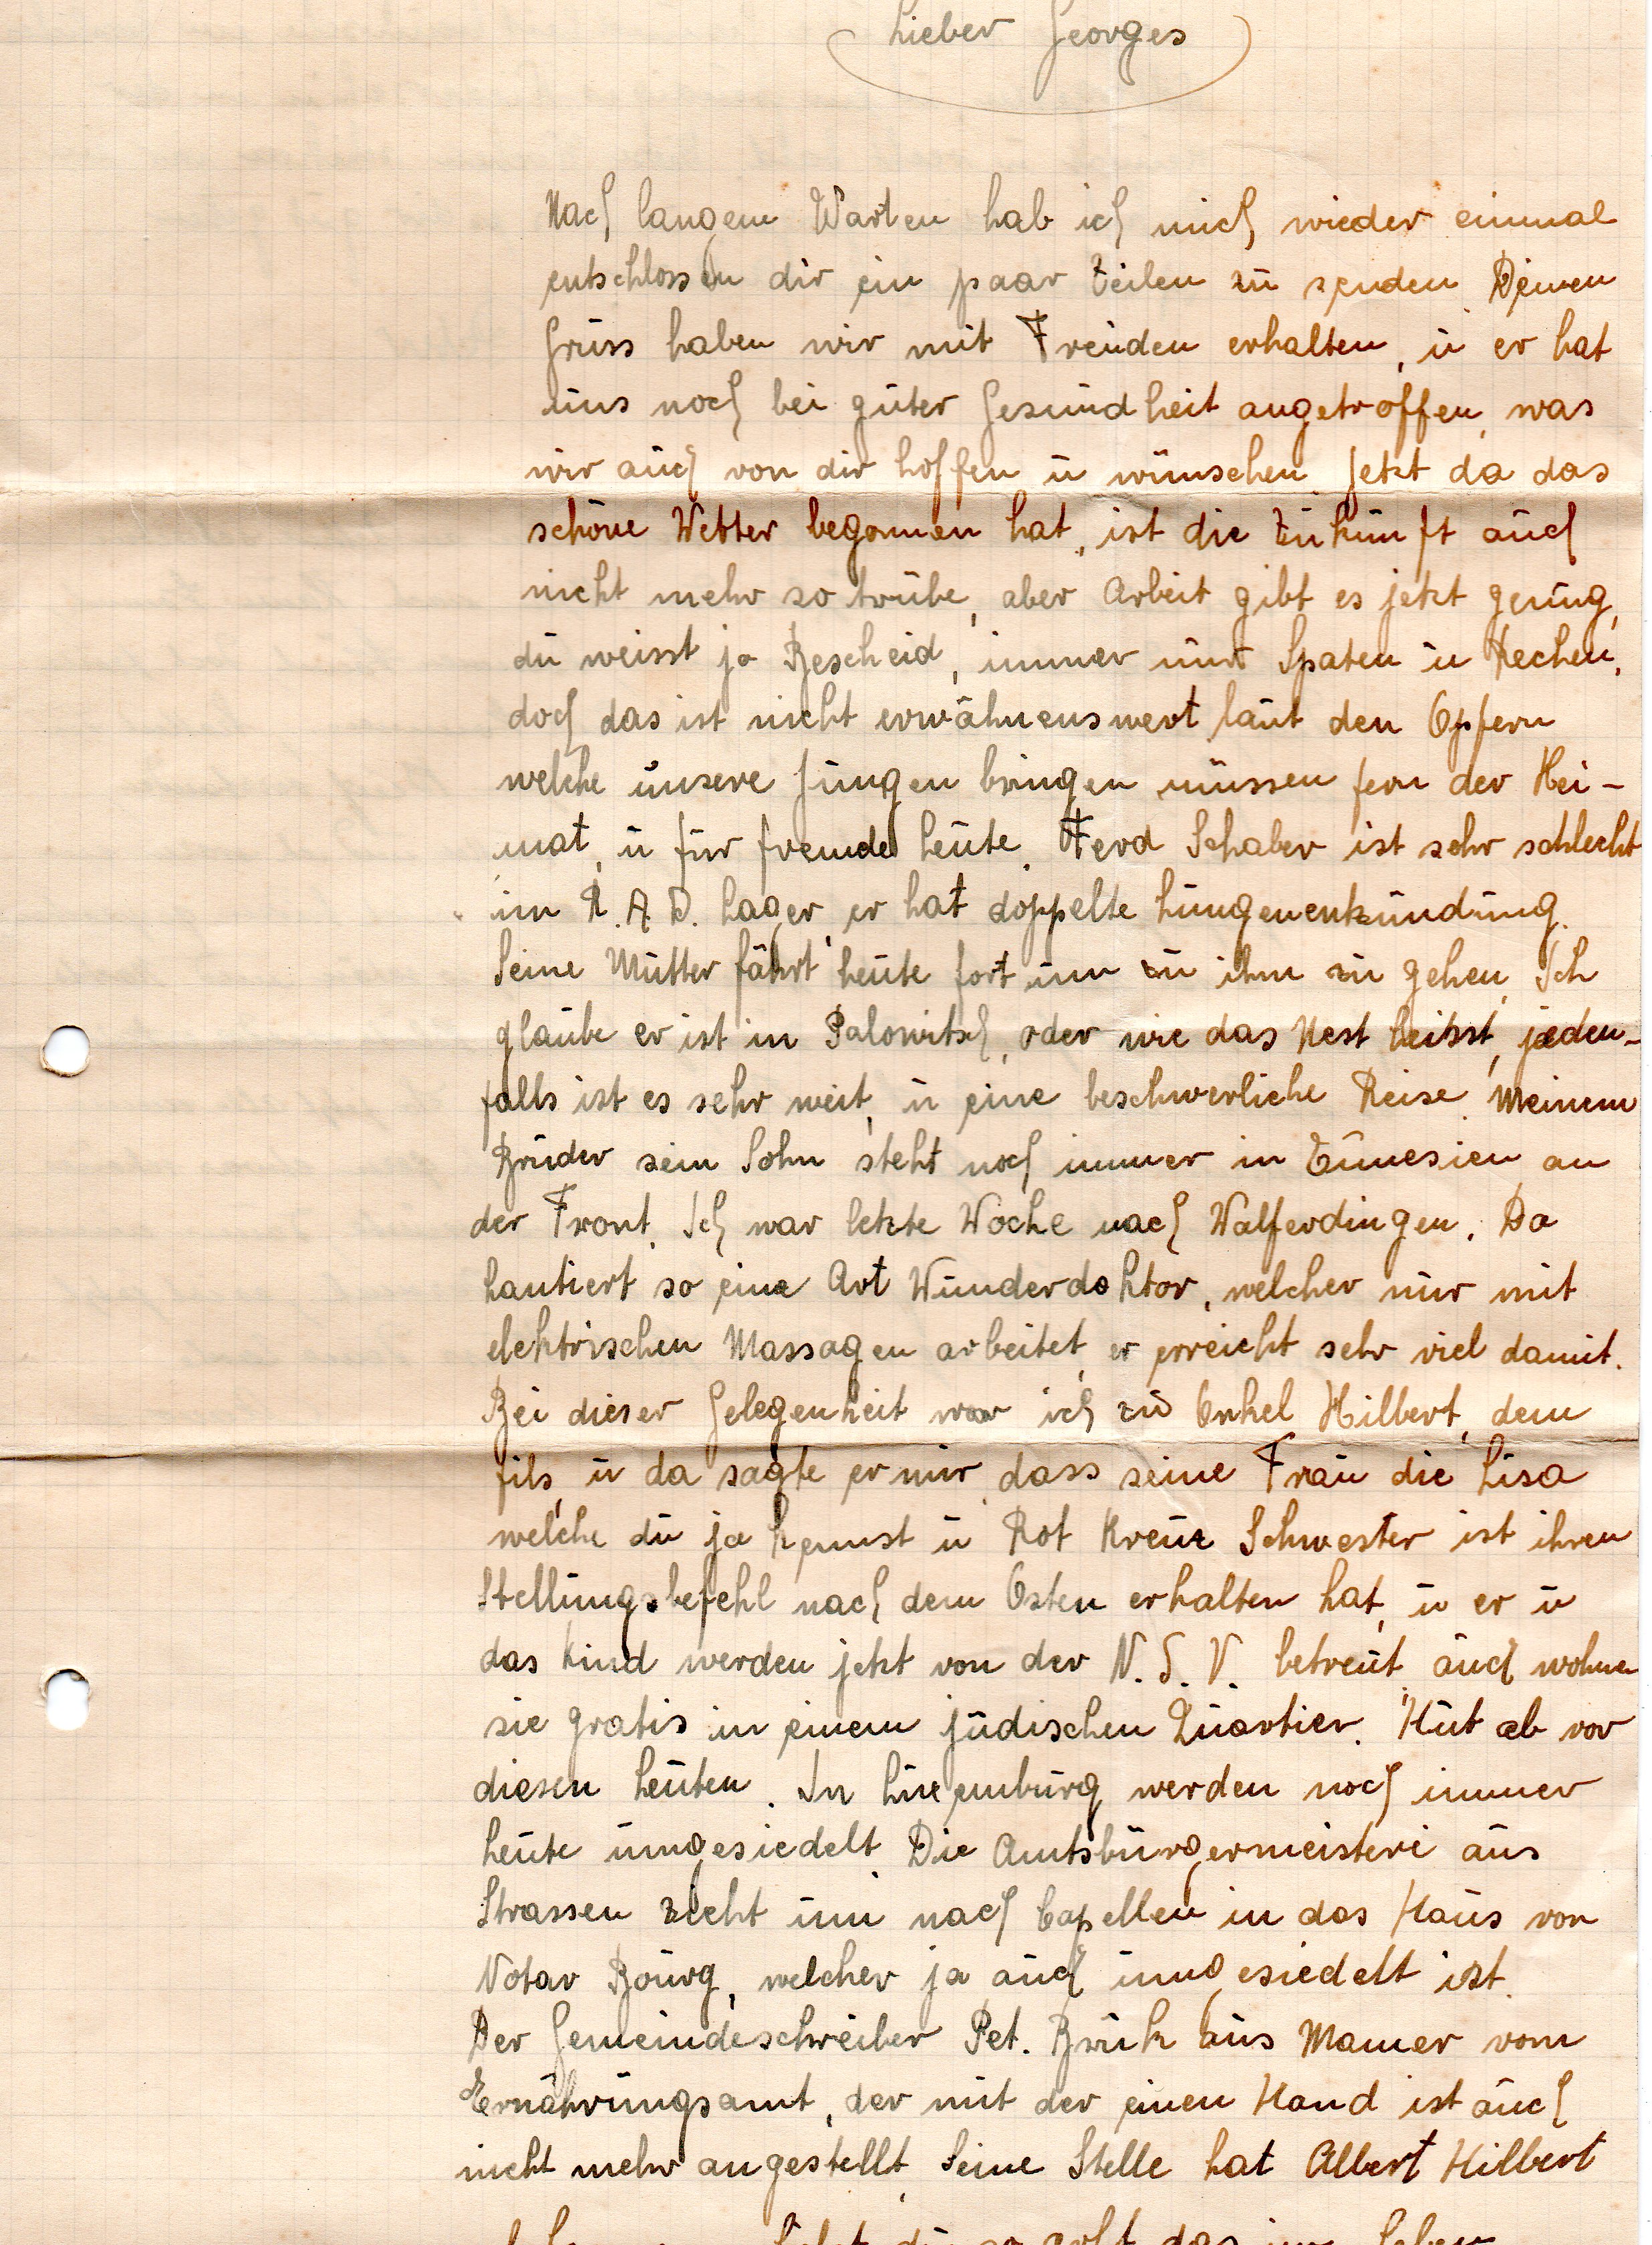 Lieber Georges
Nach langem Warten hab ich mich wieder einmal
entschlossen dir ein paar Zeilen zu senden. Deinen
Gruss haben wir mit Freuden erhalten, u er hat
uns noch bei guter Gesundheit angetroffen, was
wir auch von dir hoffen u wünschen. Jetzt da das
schöne Wetter begonnen hat, ist die Zukunft auch
nicht mehr so trübe, aber Arbeit gibt es jetzt genug,
du weisst ja Bescheid, immer nur Spaten u Rechen,
doch das ist nicht erwähnenswert laut den Opfern
welche unsere Jungen bringen müssen fern der Hei-
mat, u für fremde Leute. Ferd Schaber ist sehr schlecht
im R.A.D. Lager, er hat doppelte Lungenentzündung.
Seine Mutter fährt heute fort um zu ihm zu gehen. Ich
glaube er ist in Palowitsch, oder wie das Nest heisst, jeden-
falls ist es sehr weit, u eine beschwerliche Reise. Meinem
Bruder sein Sohn steht noch immer in Tunesien an
der Front. Ich war letzte Woche nach Walferdingen. Da
hantiert so eine Art Wunderdoktor, welcher nur mit
elektrischen Massagen arbeitet, er erreicht sehr viel damit.
Bei dieser Gelegenheit war ich zu Onkel Hilbert, dem
fils, u da sagte er mir, dass seine Frau die Lisa
welche du ja kennst u Rot Kreuz Schwester ist ihren
Stellungsbefehl nach dem Osten erhalten hat, u er u
das Kind werden jetzt von der N.S.V. betreut, auch wohnen
sie gratis in einem jüdischen Quartier. Hut ab vor
diesen Leuten. In Luxemburg werden noch immer
Leute umgesiedelt. Die Amtsbürgermeisterei aus
Strassen zieht um nach Capellen in das Haus von
Notar Bourg, welcher ja auch umgesiedelt ist.
Der Gemeindeschreiber Pet. Brük aus Mamer vom
Ernährungsamt, der mit der einen Hand ist auch
nicht mehr angestellt. Seine Stelle hat Albert Hilbert